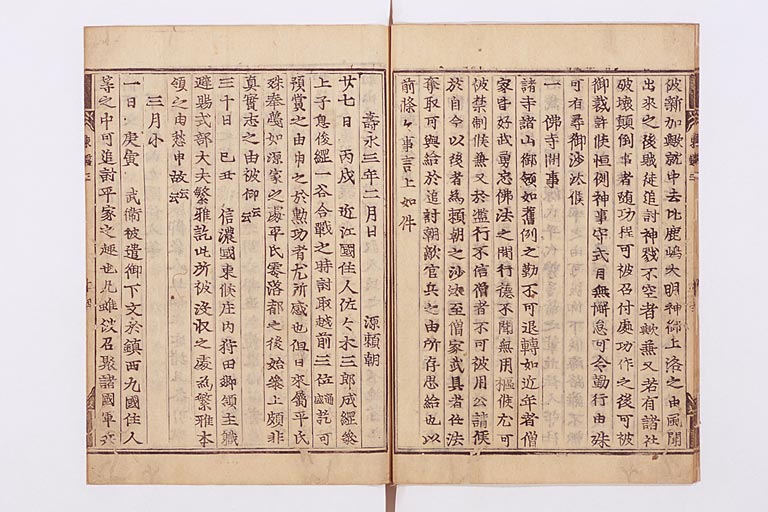 被新加歟就中去比鹿嶋大明神御上洛之由風聞
出來之後賊徒追討神戮不空者歟兼又若有諸社
破壊顛倒事者随功程可被召付處功作之後可被
御裁許候恒例神事守式目無懈怠可令勤行由殊
可有尋御沙汰候
一 佛寺間事
諸寺諸山御領如舊例之勤不可退轉如近年者僧
家皆好武勇忘佛法之間行德不聞無用樞候尤可
被禁制候兼又於濫行不信僧者不可被用公請候
於自今以後者為頼朝之沙汰至僧家武具者任法
奪取可與給於追討朝敵官兵之由所存思給也以
前條々事言上如件
壽永三年二月日 源頼朝
廿七日 丙戌 近江國住人佐々木三郎成經參
上子息俊經一谷合戰之時討取越前三位通盛訖可
預賞之由申之於勲功者尤所感也但日來屬平氏
殊奉蔑如源家之處平氏零落都之後始參上頗非
真實志之由被仰云云
三十日 己丑 信濃國東條庄内狩田郷領主職
避賜式部大夫繁雅訖此所被没収之處為繁雅本
領之由愁申故云云
三月小
一日 庚寅 武衛被遣御下文於鎮西九國住人
等之中可追討平家之趣也凡雖被召聚諸國軍兵